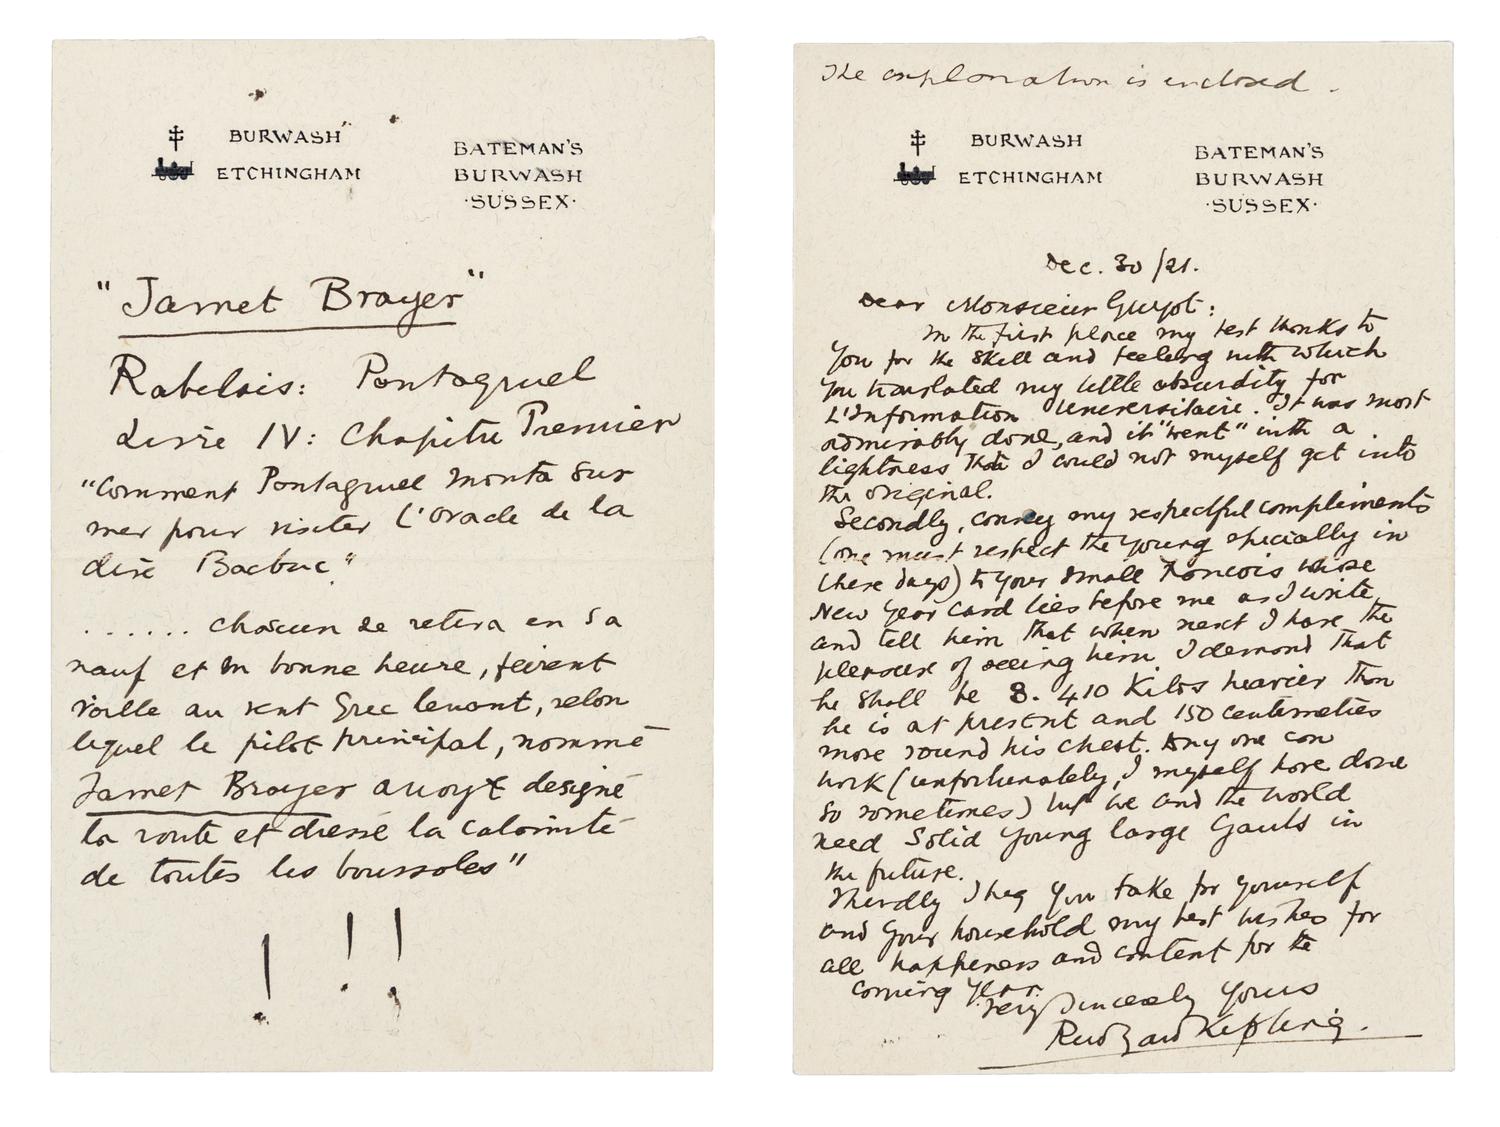 BURWASH
ETCHINGHAM
BATEMAN'S
BURWASH
·SUSSEX·
"Jamet Brayer"
Rabelais: Pantagruel
Livre IV: Chapitre Premier
"Comment Pantagruel monta sur
mer pour visiter l'Oracle de la
dive Bacbuc."
...... chascun se retira en sa
nauf et en bonne heure, feirent
voille au vent Grec levant, selon
lequel le pilot principal, nommé
Jamet Brayer avoyt designé
la route et dressé la calamite
de toutes les boussoles"
! ! !
The explanation is enclosed.
BURWASH
ETCHINGHAM
BATEMAN'S
BURWASH
·SUSSEX·
Dec. 30/21.
Dear Monsieur Guyot:
In the first place my best thanks to
you for the skill and feeling with which
you translated my little absurdity for
L'Information Universitaire. It was most
admirably done, and it "went" with a
lightness that I could not myself get into
the original.
Secondly, convey my respectful compliments
(one must respect the young specially in
these days) to your small François whose
New Year card lies before me as I write,
and tell him that when next I have the
pleasure of seeing him, I demand that
he shall be 8. 410 Kilos heavier than
he is at present and 150 centimetres
more round his chest. Any one can
work (unfortunately, I myself have done
so sometimes) but we and the world
need solid young large Gauls in
the future.
Thirdly I beg you take for yourself
and your household my best wishes for
all happiness and content for the
coming year.
Very sincerely yours
Rudyard Kipling.